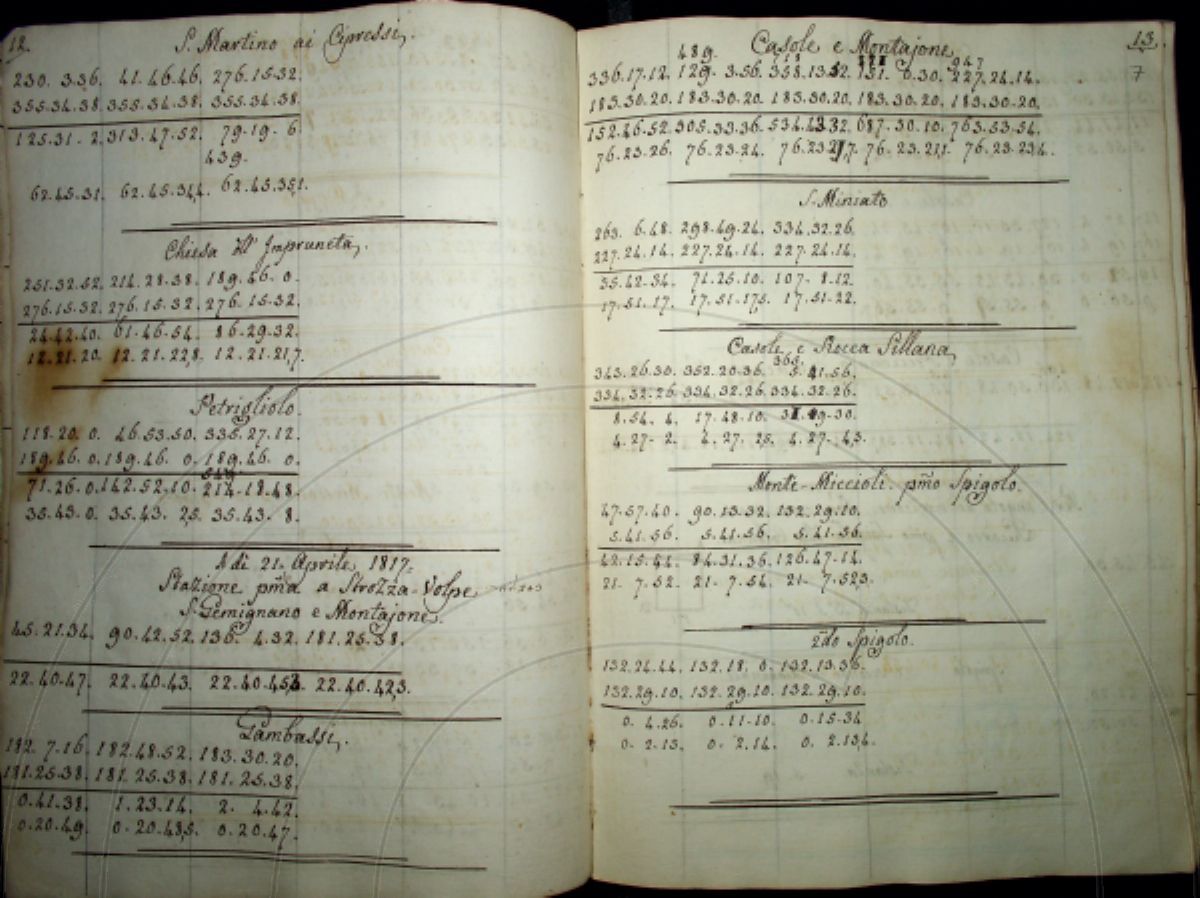 12.
S. Martino ai Cipressi.
230. 3.36. 41.46.46. 276.15.32.
355.34.38. 355.34.38. 355.34.38.
125.31. 2. 313.47.52. 79.19. 6.
439.
62.45.31. 62.45.34,4. 62.45.35,1.
Chiesa dell' Impruneta.
251.32.52. 214.28.38. 189.46. 0.
276.15.32. 276.15.32. 276.15.32.
24.42.40. 61.46.54. 86.29.32.
12.21.20. 12.21.22,8. 12.21.21,7.
Petrigliolo.
118.20. 0. 46.53.50. 335.27.12.
189.46. 0. 189.46. 0. 189.46. 0.
71.26.0. 142.52.10. 214.18.48.
35.43.0. 35.43. 2,5. 35.43. 8.
A di 21. Aprile 1817.
Stazione pma a Strozza-Volpe
S. Gemignano e Montajone.
45.21.34. 90.42.52. 136. 4.32. 181.25.38.
22.40.47. 22.40.43. 22.40.45,3. 22.40.42,3.
Gambassi.
182. 7.16. 182.48.52. 183.30.20.
181.25.38. 181.25.38. 181.25.38.
0.41.38. 1.23.14. 2. 4.42.
0.20.49. 0.20.48,5. 0.20.47.
13.
7
Casole e Montajone
489.
336.17.12. 129. 3.56. 358.13.52. 151. 0.30. 227.24.14.
183.30.20. 183.30.20. 183.30.20. 183.30.20. 183.30.20.
152.46.52. 305.33.36. 534.43.32. 687.30.10. 763.53.54.
76.23.26. 76.23.24. 76.23.21,7. 76.23.21,1. 76.23.23,4.
S. Miniato
263. 6.48. 298.49.24. 334.32.26.
227.24.14. 227.24.14. 227.24.14.
35.42.34. 71.25.10. 107. 8.12.
17.51.17. 17.51.17,5. 17.51.22.
Casole e Rocca Sillana
365.
343.26.30. 352.20.36. 5.41.56.
334.32.26. 334.32.26. 334.32.26.
8.54. 4. 17.48.10. 31. 9.30.
4.27. 2. 4.27. 2,5. 4.27. 4,3.
Monte-Miccioli pmo Spigolo.
47.57.40. 90.13.32. 132.29.10.
5.41.56. 5.41.56. 5.41.56.
42.15.44. 84.31.36. 126.47.14.
21. 7.52. 21. 7.54. 21. 7.52,3.
2do Spigolo.
132.24.44. 132.18. 0. 132.13.36.
132.29.10. 132.29.10. 132.29.10.
0. 4.26. 0.11.10. 0.15.34
0. 2.13. 0. 2.14. 0. 2.13,4.